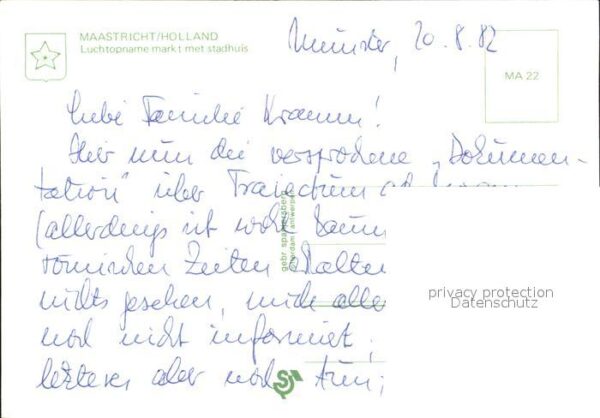 MAASTRICHT/HOLLAND
Luchtopname markt met stadhuis
Münster, 20.8.82
MA 22
Liebe Familie Kramm!
Hier nun die versprochene „Dokumen-
tation" über Trajectum ad
(allerdings ist wohl kaum
römischen Zeiten erhalten
nichts gesehen, mich aller
noch nicht informiert,
letzteres aber noch tun;
gebr spanjersberg
rotterdam/antwerpen
privacy protection
Datenschutz